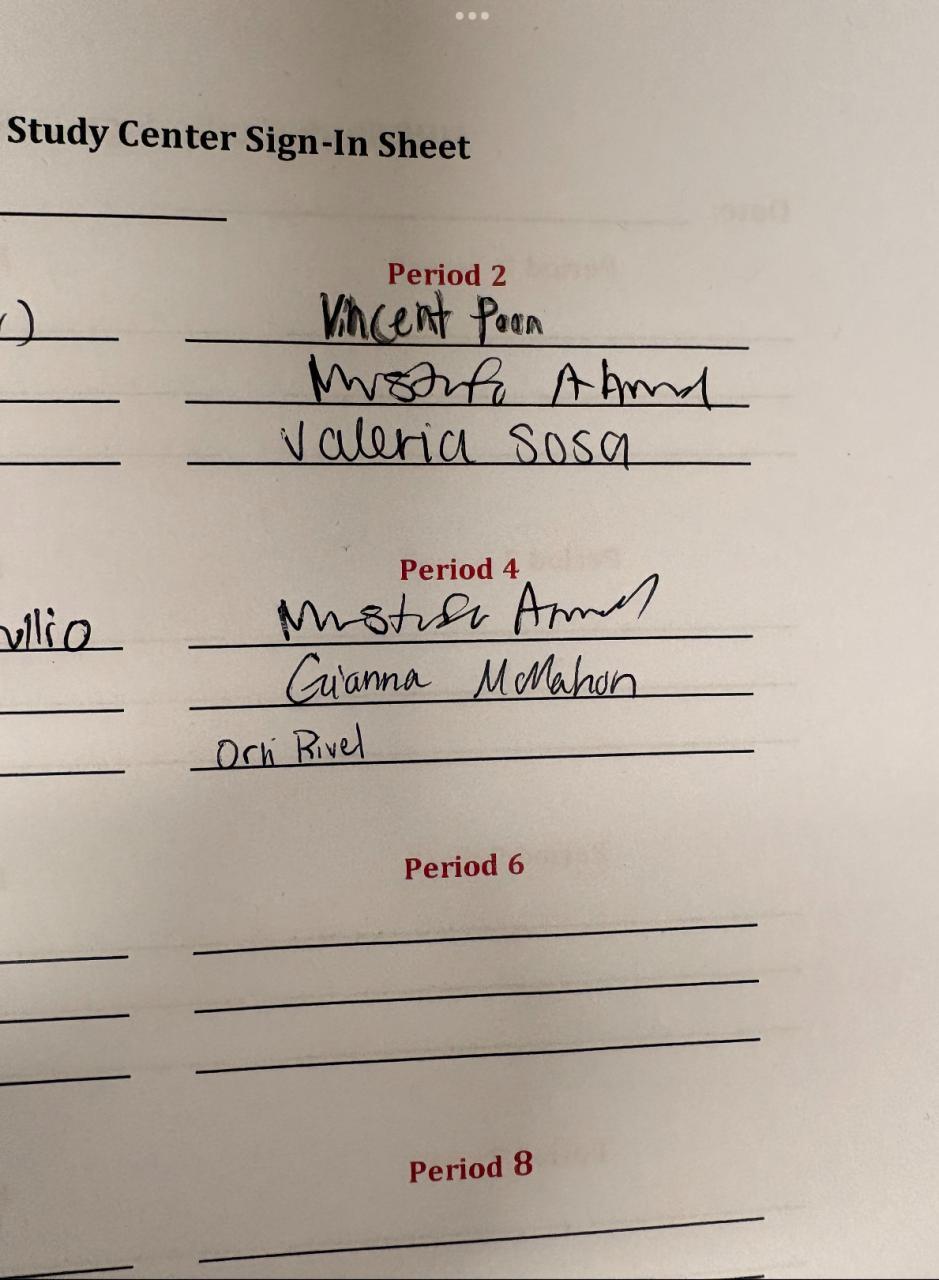 Study Center Sign-In Sheet
Period 2
Vincent Poon
Mustafa Ahmed
Valeria Sosa
Period 4
Mustafa Ahmed
Gianna McMahon
Rivel
Period 6
Period 8